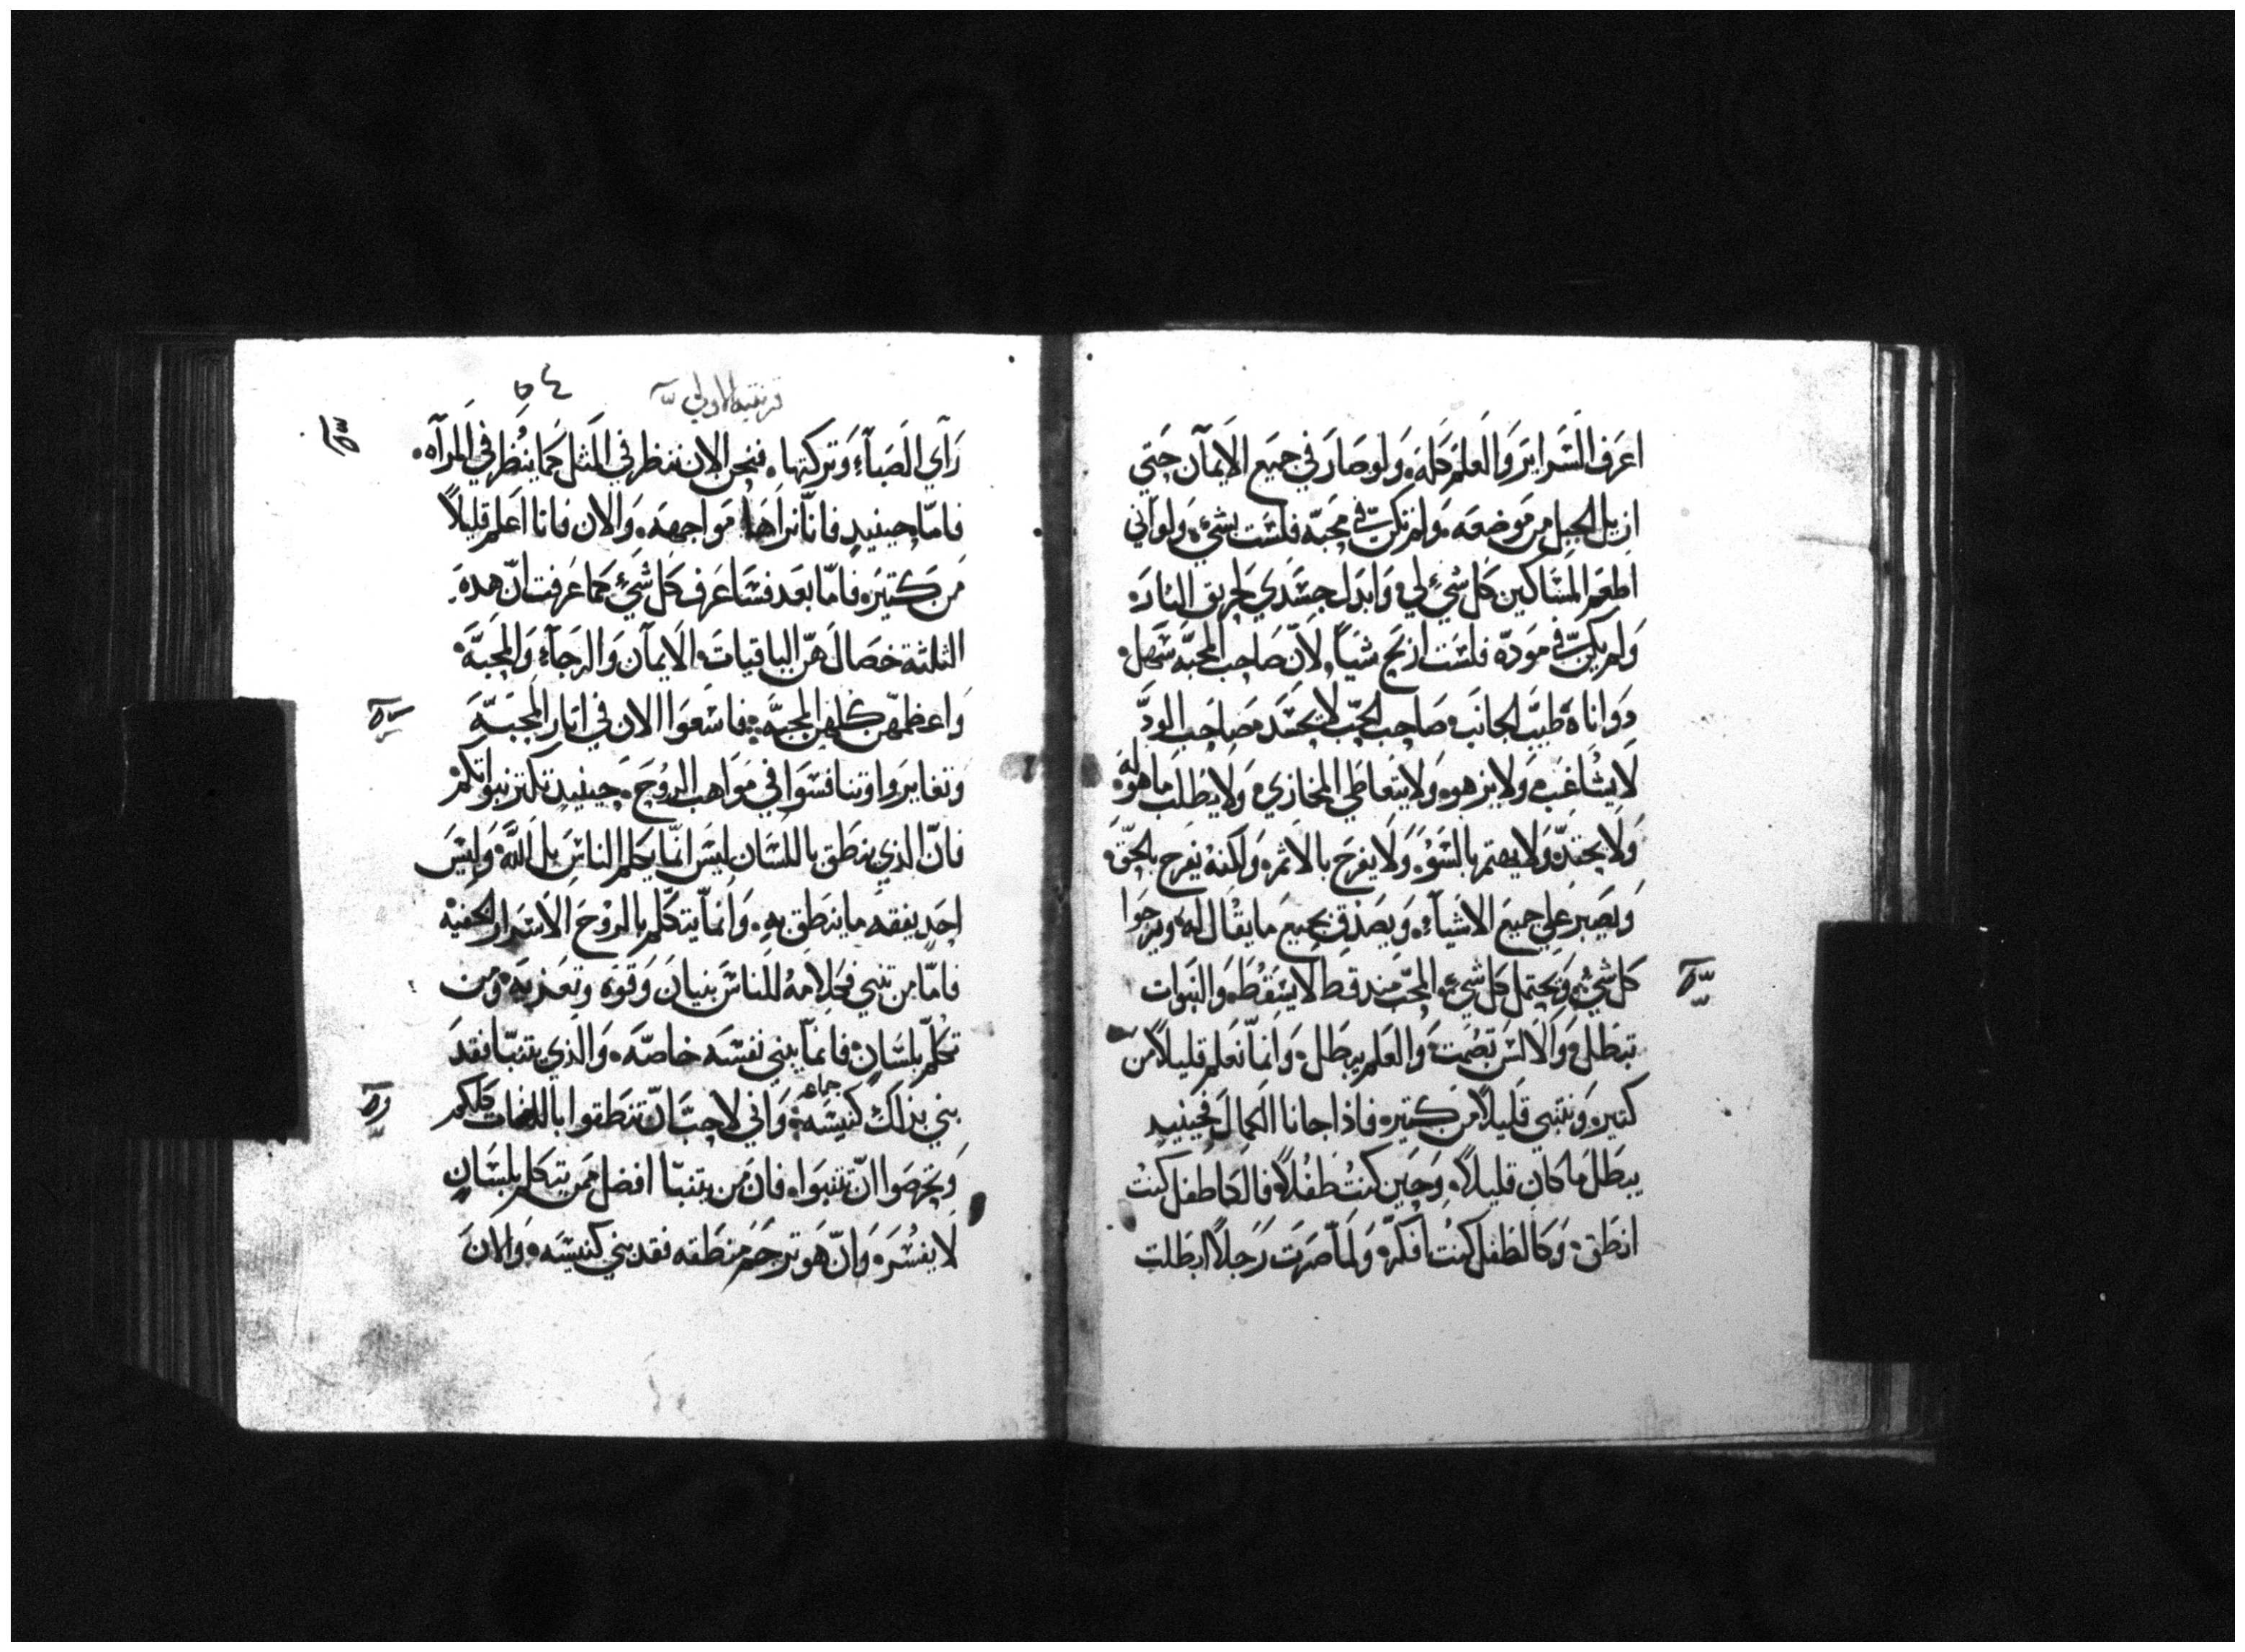 اعرف السراير والعلم كله، ولو صار في جميع الايمان حتي
ازيل الجبل من موضعه، ولم تكن فيّ محبه فلست بشيء، ولو اني
اطعم المساكين كل شيءٍ لي، وابدل جسدي لحريق النار،
ولم يكن فيّ مودّه فلست اربح شياً، لانّ صاحب المحبه سهل،
وواناة طيب الجانب، صاحب الحب لا يحسد، صاحب الودّ
لا يشاغب، ولا يزهو، ولا يتعاطي المخازي، ولا يطلب ما هو له
ولا يحتدّ، ولا يهتم بالسوء، ولا يفرح بالاثم، ولكنه يفرح بالحق،
ويصبر علي جميع الاشيآء، ويصدق بجميع ما يقال له، ويرجوا
كل شيءٍ، ويحتمل كل شيءٍ، المحب مند قط لا يسقط، والنبوات
تبطل، والالسن تصمت، والعلم يبطل، وانمّا نعلم قليلاً من
كتير، ونتنبي قليلاً من كتير، فاذا جانا الكمال فحينيدٍ
يبطل ما كان قليلاً، وحين كنتُ طفلاً، فالكالطفل كنت
انطق، وكالطفل كنت افكر، ولما صرت رجلاً ابطلت
٥٤
رآي الصبآء وتركتها، فنحن الان ننظر في المثل كما ينظر في المرآه،
فامّا حينيدٍ فانّا نراها مواجهه، والان فانا اعلم قليلاً
من كتير، فامّا بعد فساعرف كل شيءٍ كما عرفت انّ هده
الثلثة خصال هنّ الباقيات، الايمان والرجآء والمحبّه
واعظمهن كلهن المحبّه، فاسعوا الان في اتار المحبّه
وتغايروا وتنافسوا في مواهب الروح، حينيدٍ تكتر نبواتكم
فانّ الذي ينطق باللسان ليس انّما يكلم الناس بل الله، وليس
احد يفقه ما ينطق به، وانمّا يتكلم بالروح الاسرار الخفيه
فامّا من تنبي فكلامه للناس بنيان وقوه وتعزيه، ومن
تكلّم بلسانٍ فانمّا يبني نفسه خاصّه، والذي يتنبّا فقد
بني بذلك كنيسه، واني لاحبّ انّ تنطقوا باللغات كلكم
جماعه
وتحرصوا انّ تتنبوا، فان من يتنبّا افضل ممن يتكلم بلسانٍ
لا يفسر، وانّ هو ترجم منطقه فقد بني كنيسه، والان